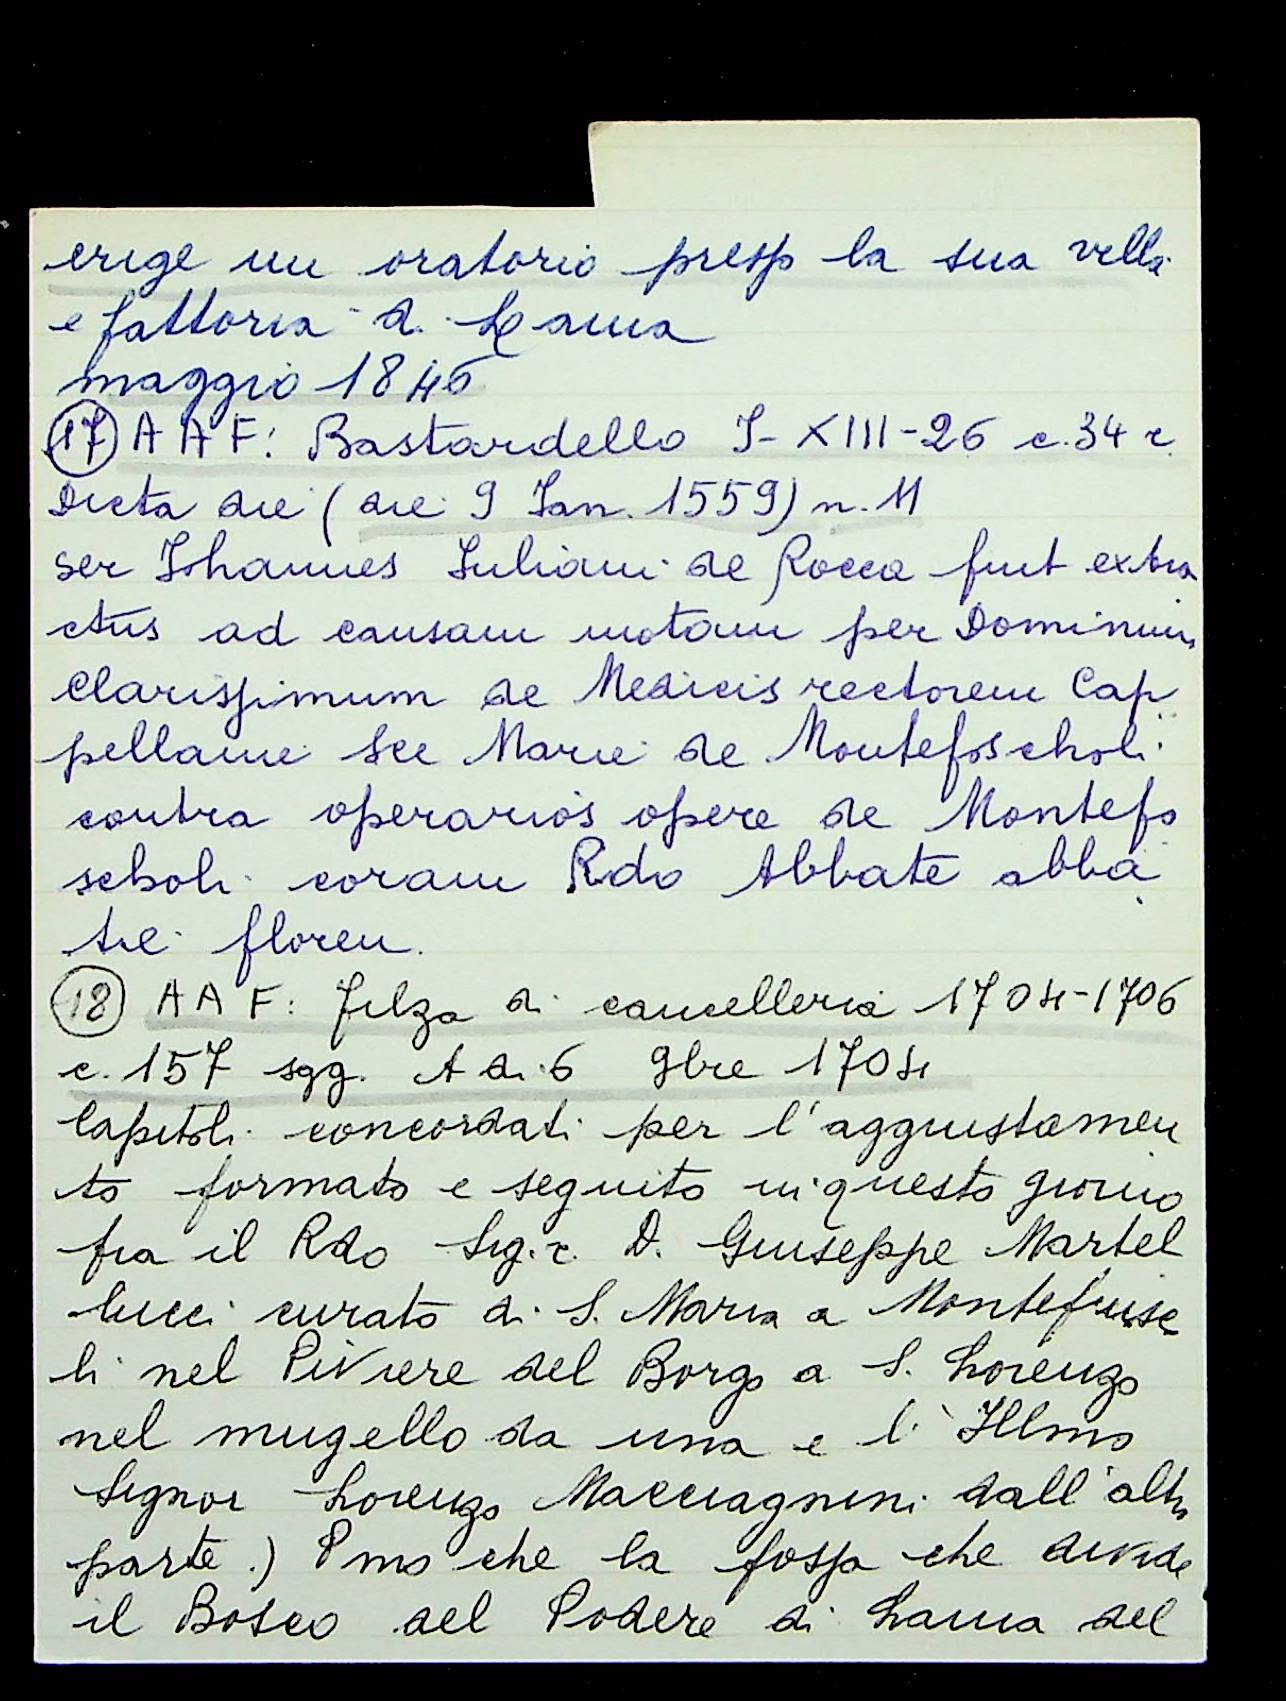 erige un oratorio presso la sua villa
e fattoria di Lama
maggio 1846
(17) A A F: Bastardello I-XIII-26 c. 34 r.
Dicta die (die 9 Ian. 1559) n. 11
ser Iohannes Iuliani de Rocca fuit extra
ctus ad causam motam per Dominum
Clarissimum de Medicis rectorem Cap
pellanie Sce Marie de Montefoscholi
contra operarios opere de Montefo
scholi coram Rdo Abbate abba
tie floren.
(18) A A F: Filza di cancelleria 1704-1706
c. 157 sgg. A di 6 9bre 1704
Capitoli concordati per l'aggiustamen
to formato e seguito in questo giorno
fra il Rdo Sig.r. D. Giuseppe Martel
lucci curato di S. Maria a Montefusc
li nel Piviere del Borgo a S. Lorenzo
nel mugello da una e l' Illmo
Signor Lorenzo Macciagnini dall'altra
parte.) Pmo che la fossa che divide
il Bosco del Podere di Lama del